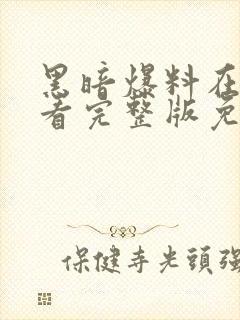 黑暗爆料在
看完整版免
保健寺光頭強